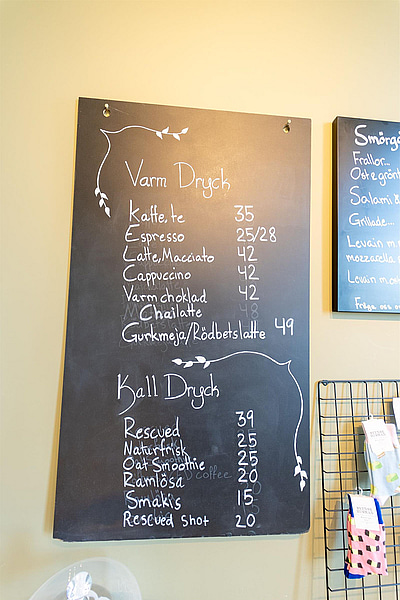 Varm Dryck
Kaffe, te 35
Espresso 25/28
Latte, Macciato 42
Cappuccino 42
Varm choklad 42
Chailatte 48
Gurkmeja/Rödbetslatte 49
Kall Dryck
Rescued 39
Naturfrisk 25
Oat Smoothie 25
Ramlösa 20
Smakis 15
Rescued Shot 20
Smörgå
Frallor...
Ost e grönt
Salami &
Grillade...
Levain m.
mozzarella
Levain m.
Fråga oss